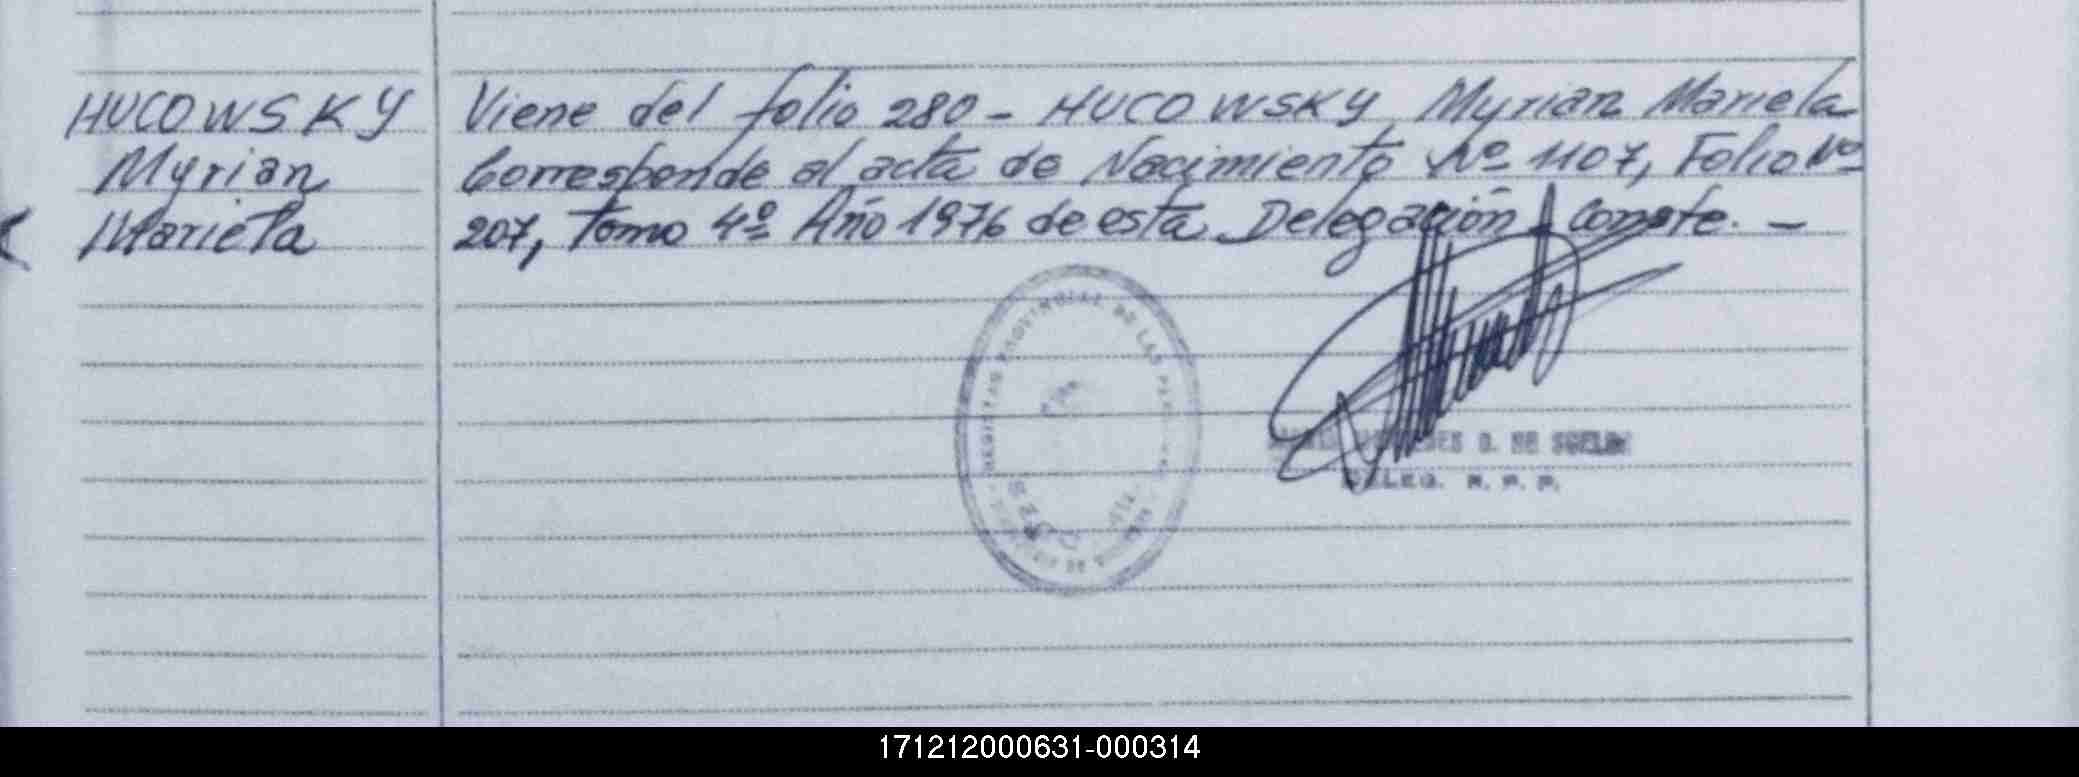 HUCOWSKY
Myrian
Mariela
Viene del folio 280 - HUCOWSKY, Myrian Mariela
Corresponde al acta de Nacimiento Nº 1107, Folio Nº
207, Tomo 4º Año 1976 de esta Delegación conste. -
REGISTRO PROVINCIAL DE LAS
DELEG. R. P. P.
171212000631-000314